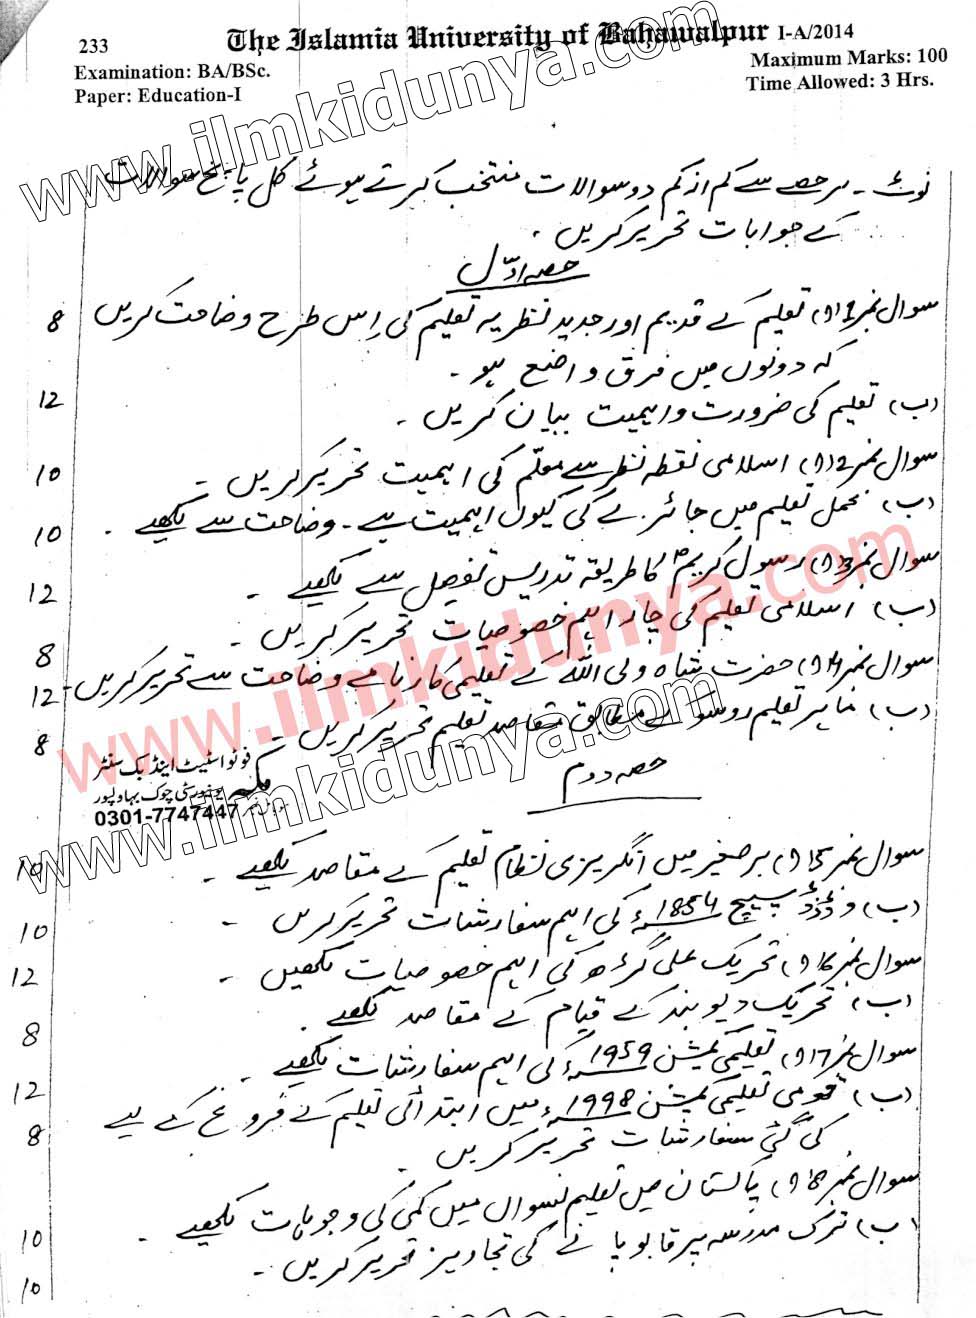 233
The Islamia University of Bahawalpur I-A/2014
Examination: BA/BSc.
Maximum Marks: 100
Paper: Education-I
Time Allowed: 3 Hrs.
www.ilmkidunya.com
نوٹ ۔ ہر حصے سے کم از کم دو سوالات منتخب کرتے ہوئے کل پانچ سوالات
کے جوابات تحریر کریں ۔
حصہ اوّل
سوال نمبر 1 (ا) تعلیم کے قدیم اور جدید نظریہ تعلیم کی اِس طرح وضاحت کریں 8
کہ دونوں میں فرق واضع ہو ۔
(ب) تعلیم کی ضرورت و اہمیت بیان کریں ۔ 12
سوال نمبر 2 (ا) اسلامی نقطہ نظر سے معلّم کی اہمیت تحریر کریں ۔ 10
(ب) عمل تعلیم میں جائزے کی کیوں اہمیت ہے ۔ وضاحت سے لکھیے ۔ 10
سوال نمبر 3 (ا) رسول کریمؐ کا طریقہ تدریس تفصیل سے لکھیے ۔ 12
(ب) اسلامی تعلیم کی چار اہم خصوصیات تحریر کریں ۔ 8
www.ilmkidunya.com
سوال نمبر 4 (ا) حضرت شاہ ولی اللہ کے تعلیمی کارنامے وضاحت سے تحریر کریں 12
(ب) ماہر تعلیم روسو کے مطابق مقاصد تعلیم تحریر کریں ۔ 8
حصہ دوم
مکہ فوٹو اسٹیٹ اینڈ بک سنٹر
یونیورسٹی چوک بہاولپور
0301-7747447
www.ilmkidunya.com
سوال نمبر 5 (ا) برصغیر میں انگریزی نظام تعلیم کے مقاصد لکھیے ۔ 10
(ب) وڈز ڈسپیچ 1854ء کی اہم سفارشات تحریر کریں ۔ 10
سوال نمبر 6 (ا) تحریک علی گڑھ کی اہم خصوصیات لکھیں ۔ 12
(ب) تحریک دیوبند کے قیام کے مقاصد لکھیے ۔ 8
سوال نمبر 7 (ا) تعلیمی کمشن 1959ء کی اہم سفارشات لکھیے ۔ 12
(ب) قومی تعلیمی کمشن 1998ء میں ابتدائی تعلیم کے فروغ کے لیے 8
کی گئی سفارشات تحریر کریں ۔
سوال نمبر 8 (ا) پاکستان میں تعلیم نسواں میں کمی کی وجوہات لکھیے ۔ 10
(ب) ترک مدرسہ پر قابو پانے کی تجاویز تحریر کریں ۔ 10